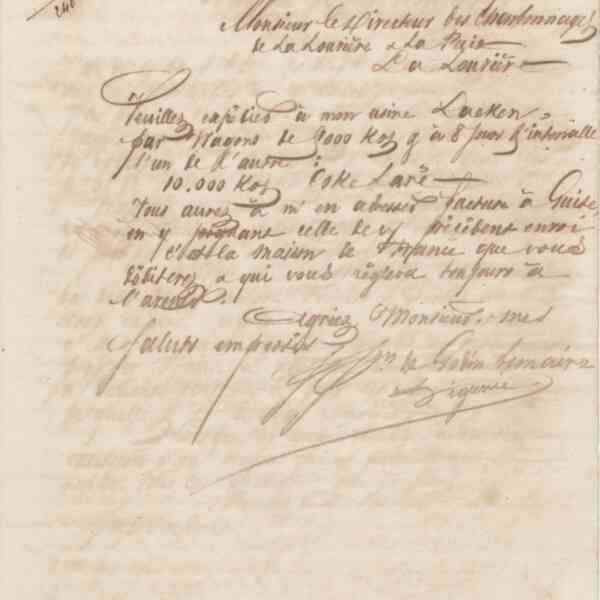 240
Monsieur le Directeur des Charbonnages
de La Louvière & La Paix
La Louvière
Veuillez expédier à mon usine Laeken,
par Wagons de 5000 Kos q à 8 Jours d'intervalle
l'un de l'autre :
10.000 Kos Coke Lavé
Vous aurez à m'en adresser facture à Guise,
en y joignant celle de vs précédent envoi
C'est la maison de France que vous
débiterez & qui vous règlera toujours à
l'avenir.
Agréez Monsieur, mes
Saluts empressés
de Godin Lemaire